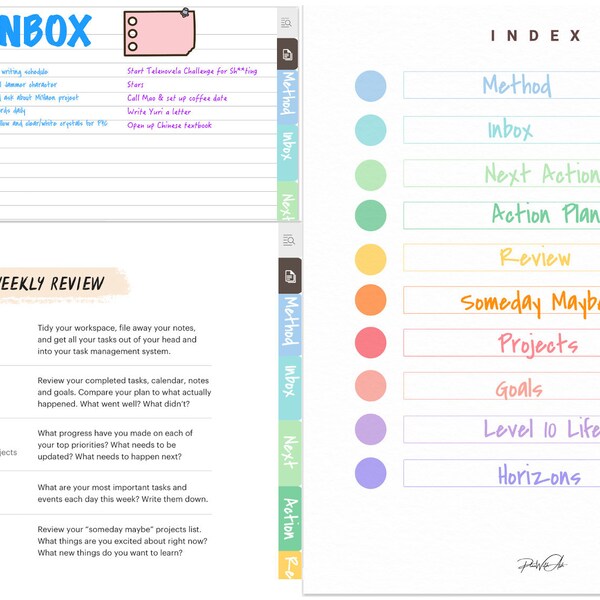 NBOX
writing schedule
Start Telenovela Challenge for Sh**ting
Jammer character
Stars
ask about Million project
Call Mao & set up coffee date
daily
Write Yuri a letter
and clear/white crystals for
Open up Chinese textbook
Method
Inbox
Next
WEEKLY REVIEW
Tidy your workspace, file away your notes,
and get all your tasks out of your head and
into your task management system.
Review your completed tasks, calendar, notes
and goals. Compare your plan to what actually
happened. What went well? What didn't?
jects
What progress have you made on each of
your top priorities? What needs to be
updated? What needs to happen next?
What are your most important tasks and
events each day this week? Write them down.
Review your "someday maybe" projects list.
What things are you excited about right now?
What new things do you want to learn?
Method
Inbox
Next
Action
Re
INDEX
Method
Inbox
Next Action
Action Plan
Review
Someday Maybe
Projects
Goals
Level 10 Life
Horizons